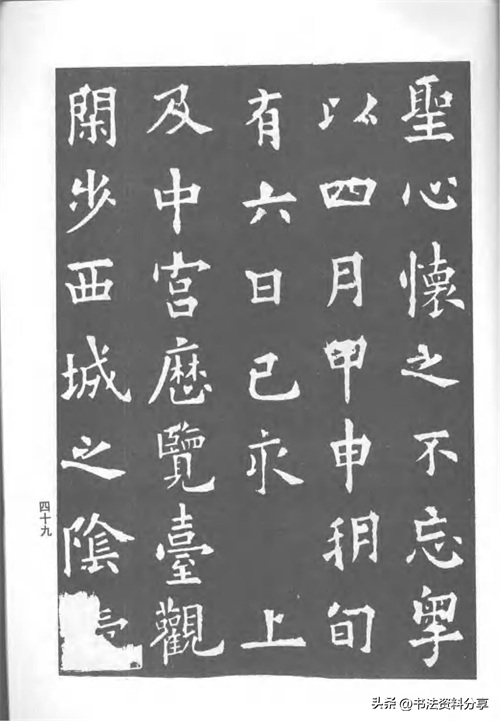 聖心懷之不忘粤
以四月甲申朔旬
有六日己亥 上
及中宮歷覽臺觀
閑步西城之陰
四十九
头条 @书法资料分享